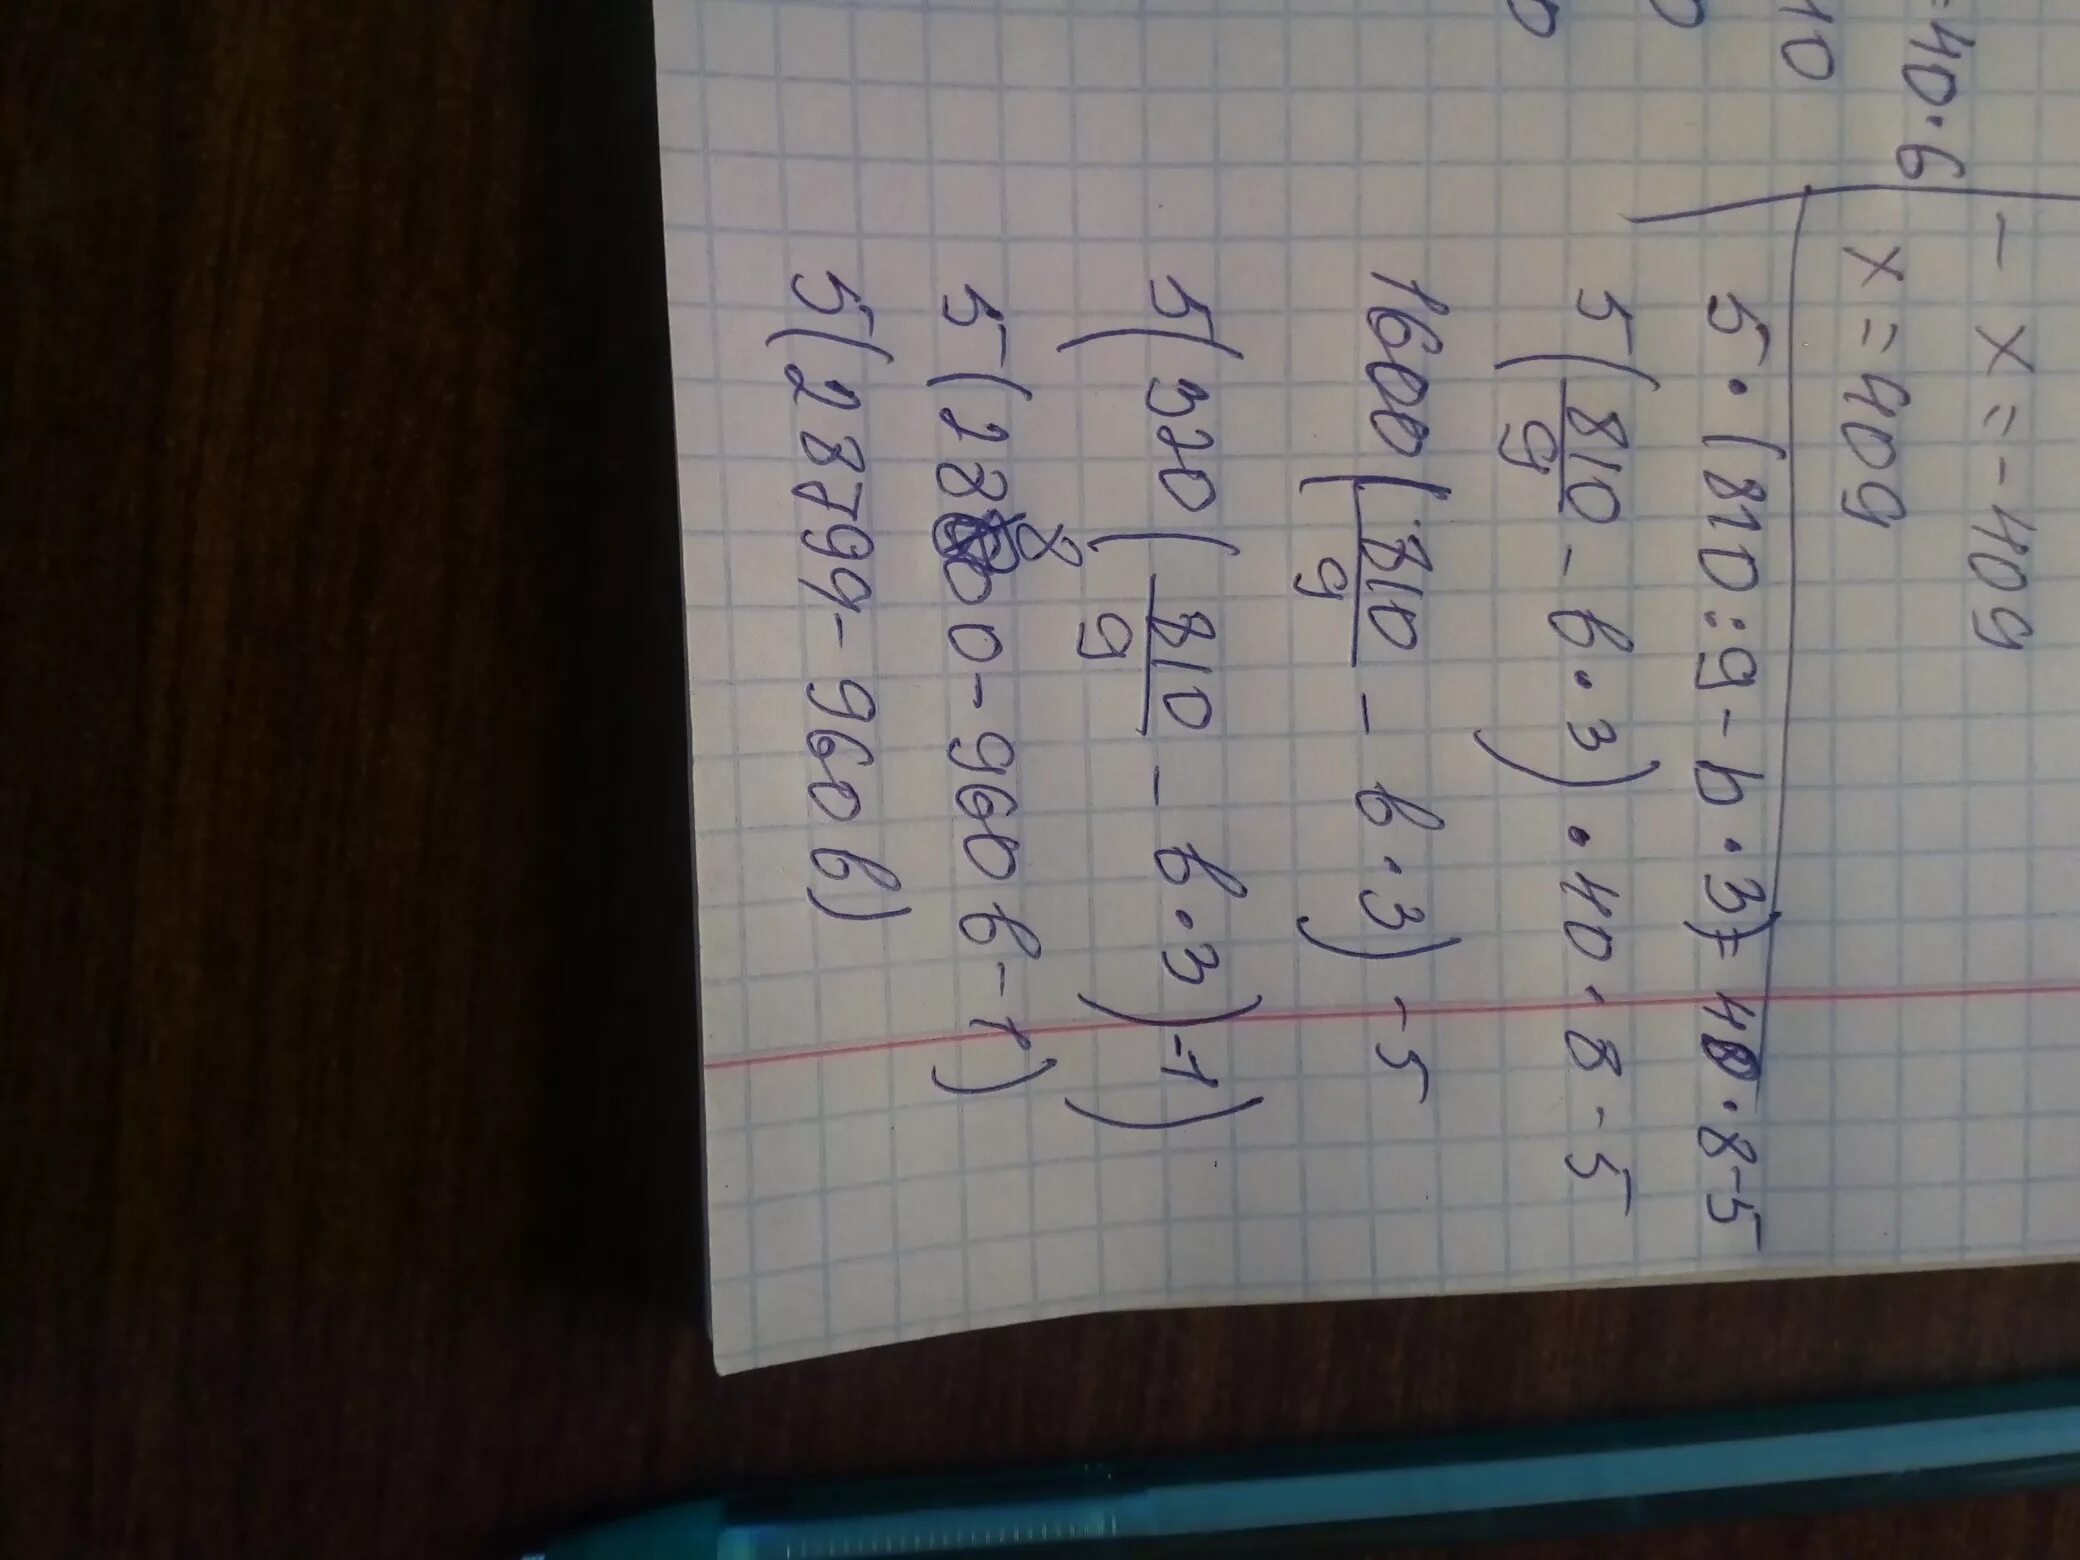 =40·6 | - x=-409
10 x=409
5·(810:9-b·3)=40·8-5
5(810/9-b·3)·40·8-5
1600(810/9-b·3)-5
5(320(810/9-b·3)-1)
5(28800-960b-1)
5(28799-960b)